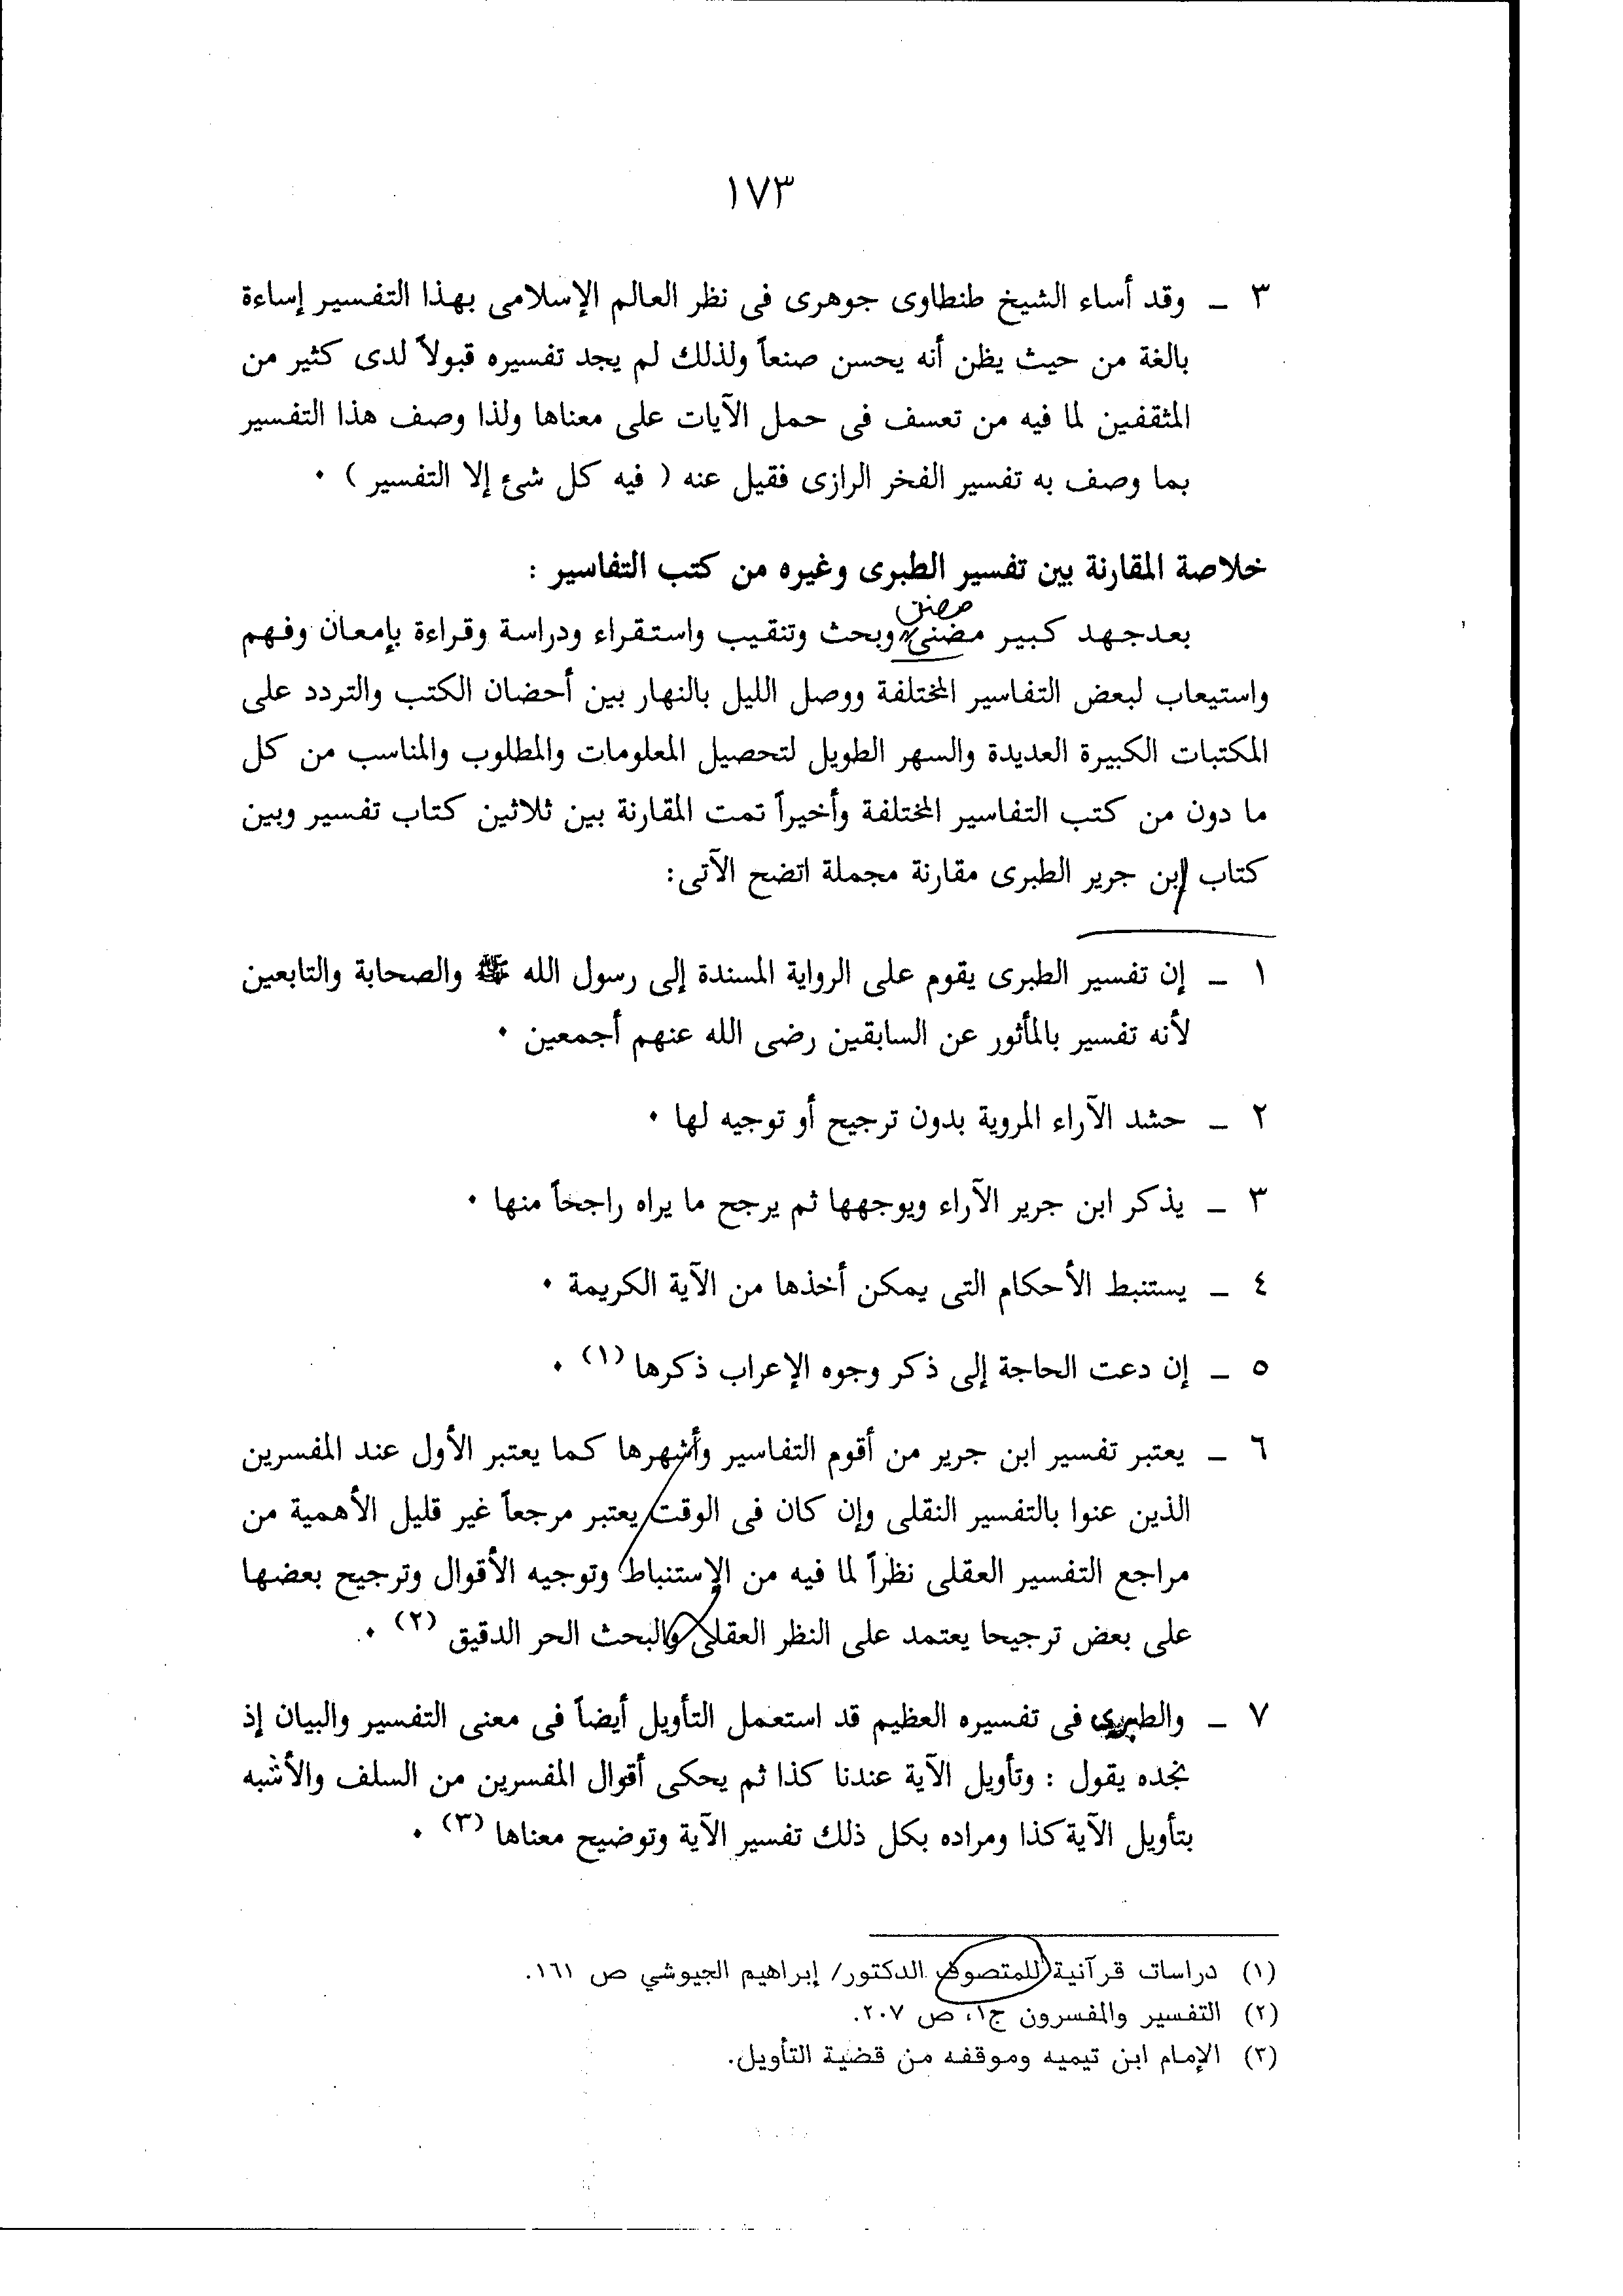 ١٧٣
٣ ــ وقد أساء الشيخ طنطاوى جوهرى فى نظر العالم الإسلامى بهذا التفسير إساءة
بالغة من حيث يظن أنه يحسن صنعاً ولذلك لم يجد تفسيره قبولاً لدى كثير من
المثقفين لما فيه من تعسف فى حمل الآيات على معناها ولذا وصف هذا التفسير
بما وصف به تفسير الفخر الرازى فقيل عنه ( فيه كل شئ إلا التفسير ) ٠
خلاصة المقارنة بين تفسير الطبرى وغيره من كتب التفاسير :
مضنٍ
بعدجهد كبير مضنى وبحث وتنقيب واستقراء ودراسة وقراءة بإمعان وفهم
واستيعاب لبعض التفاسير المختلفة ووصل الليل بالنهار بين أحضان الكتب والتردد على
المكتبات الكبيرة العديدة والسهر الطويل لتحصيل المعلومات والمطلوب والمناسب من كل
ما دون من كتب التفاسير المختلفة وأخيراً تمت المقارنة بين ثلاثين كتاب تفسير وبين
كتاب إبن جرير الطبرى مقارنة مجملة اتضح الآتى:
١ ــ إن تفسير الطبرى يقوم على الرواية المسندة إلى رسول الله ﷺ والصحابة والتابعين
لأنه تفسير بالمأثور عن السابقين رضى الله عنهم أجمعين ٠
٢ ــ حشد الآراء المروية بدون ترجيح أو توجيه لها ٠
٣ ــ يذكر ابن جرير الآراء ويوجهها ثم يرجح ما يراه راجحاً منها ٠
٤ ــ يستنبط الأحكام التى يمكن أخذها من الآية الكريمة ٠
٥ ــ إن دعت الحاجة إلى ذكر وجوه الإعراب ذكرها (١) ٠
٦ ــ يعتبر تفسير ابن جرير من أقوم التفاسير وأشهرها كما يعتبر الأول عند المفسرين
الذين عنوا بالتفسير النقلى وإن كان فى الوقت يعتبر مرجعاً غير قليل الأهمية من
مراجع التفسير العقلى نظراً لما فيه من الإستنباط وتوجيه الأقوال وترجيح بعضها
على بعض ترجيحا يعتمد على النظر العقلى والبحث الحر الدقيق (٢) ٠
٧ ــ والطبرى فى تفسيره العظيم قد استعمل التأويل أيضاً فى معنى التفسير والبيان إذ
نجده يقول : وتأويل الآية عندنا كذا ثم يحكى أقوال المفسرين من السلف والأشبه
بتأويل الآية كذا ومراده بكل ذلك تفسير الآية وتوضيح معناها (٣) ٠
(١) دراسات قرآنية للمتصوف الدكتور/ إبراهيم الجيوشي ص ١٦١.
(٢) التفسير والمفسرون ج١، ص ٢٠٧.
(٣) الإمام ابن تيميه وموقفه من قضية التأويل.